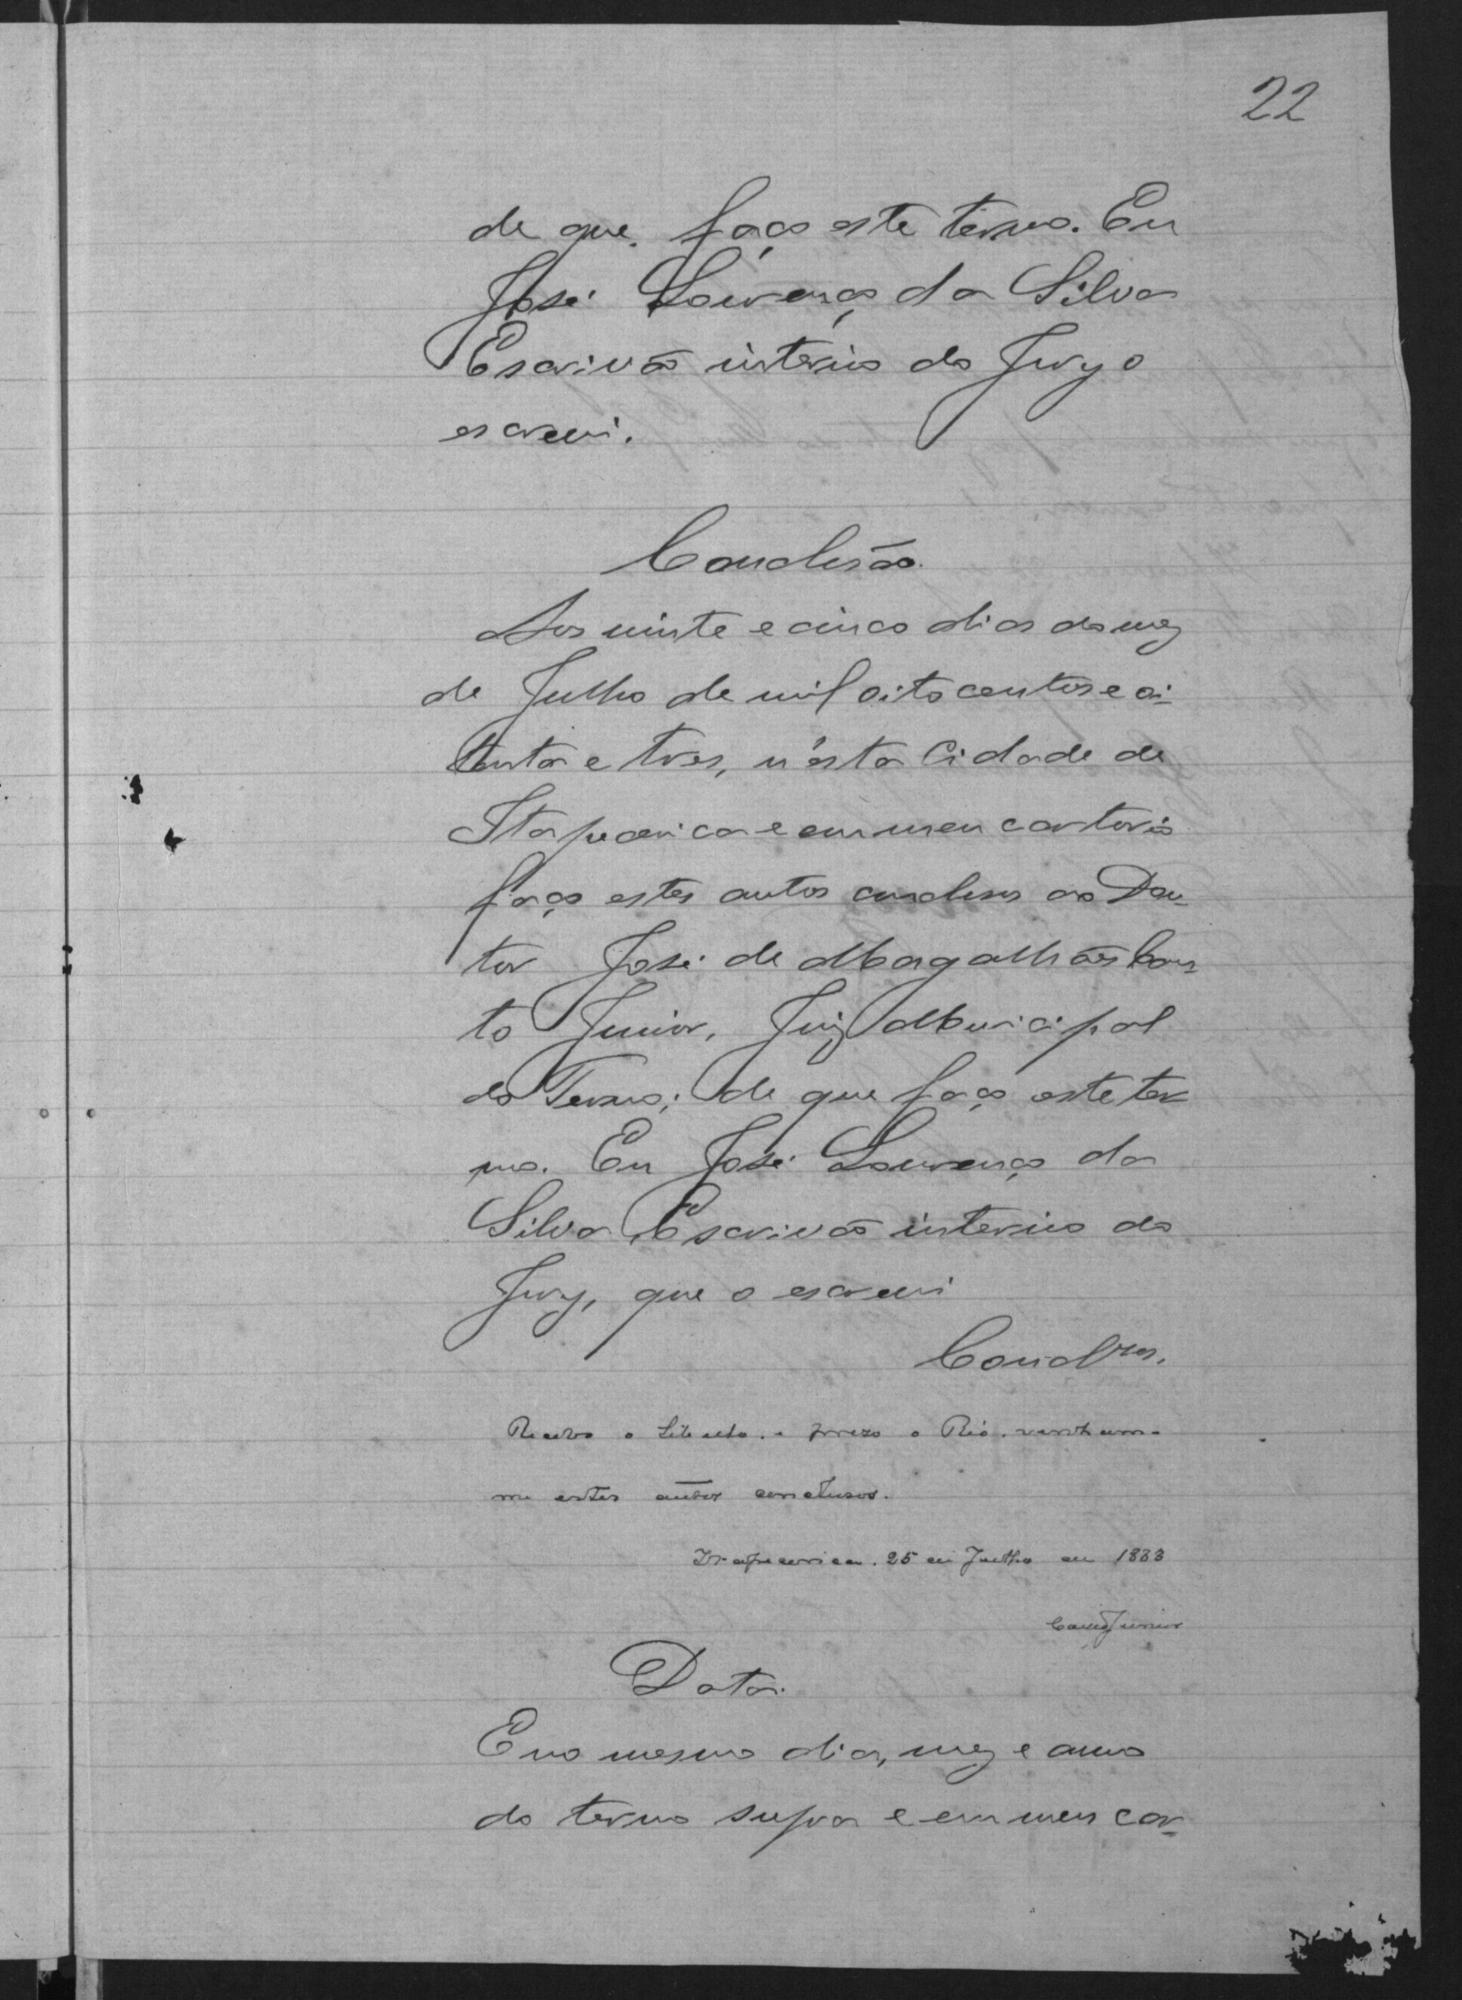 22
de que faço este termo. Eu
José Lourenço da Silva
Escrivão interino do Jury o
escrevi.
Conclusão.
Aos vinte e cinco dias do mez
de Julho de mil oito centos e oi-
tenta e tres, n'esta Cidade de
Itapecerica e em meu cartorio
faço estes autos conclusos ao Dou-
tor José de Magalhães Cou-
to Junior, Juiz Municipal
do Termo; de que faço este ter
mo. Eu José Lourenço da
Silva, Escrivão interino do
Jury, que o escrevi
Concl.os.
Recebo o Libello. e prezo o Réo. venham-
me estes autos conclusos.
Itapecerica. 25 de Julho de 1883
Couto Junior
Data.
E no mesmo dia, mez e anno
do termo supra e em meu car-